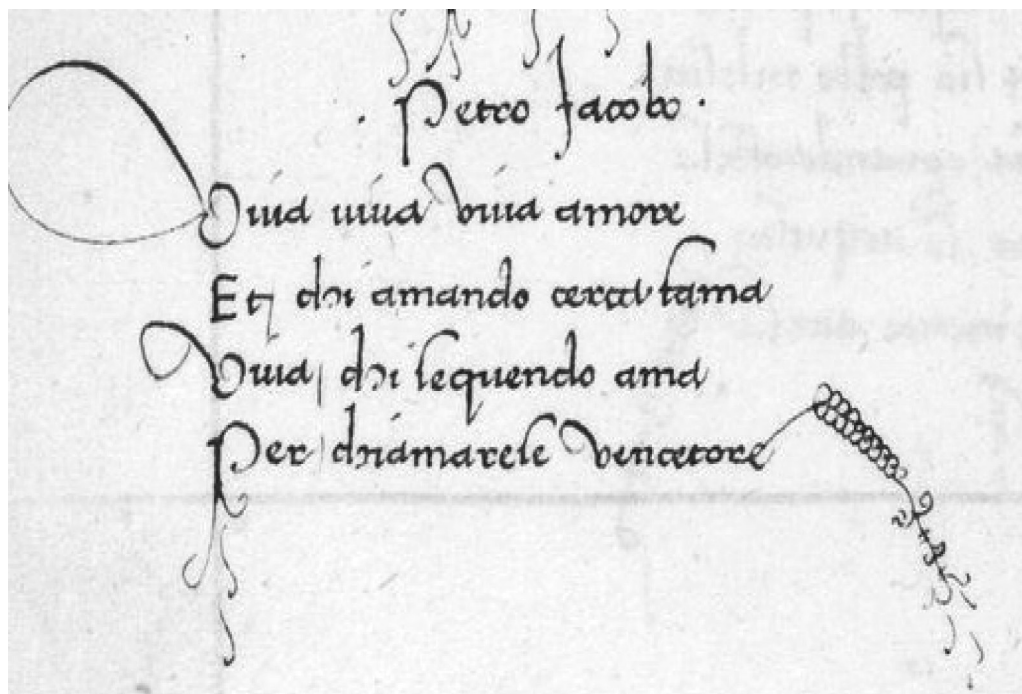 . Petro Jacobo .
Viva viva viva amore
Et chi amando cerca fama
Viva chi sequendo ama
Per chiamarese vencetore